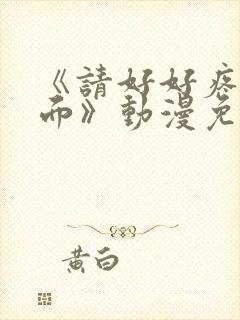 《請好好疼
而》動漫免
黃白